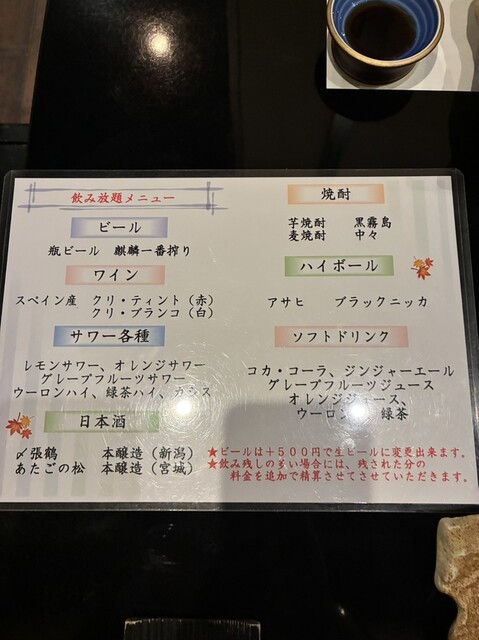 飲み放題メニュー
ビール
瓶ビール 麒麟一番搾り
ワイン
スペイン産 クリ・ティント（赤）
クリ・ブランコ（白）
サワー各種
レモンサワー、オレンジサワー
グレープフルーツサワー
ウーロンハイ、緑茶ハイ、
日本酒
〆張鶴 本醸造（新潟）
あたごの松 本醸造（宮城）
焼酎
芋焼酎 黒霧島
麦焼酎 中々
ハイボール
アサヒ ブラックニッカ
ソフトドリンク
コカ・コーラ、ジンジャーエール
グレープフルーツジュース
オレンジジュース、
緑茶
★ビールは＋５００円で生ビールに変更出来ます。
★飲み残しの多い場合には、残された分の
料金を追加で精算させてさせていただきます。